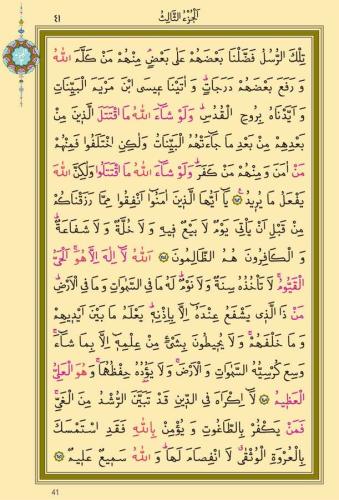 ٤١ اَلْجُزْءُ الثَّالِثُ
تِلْكَ الرُّسُلُ فَضَّلْنَا بَعْضَهُمْ عَلٰى بَعْضٍۢ مِنْهُمْ مَنْ كَلَّمَ اللّٰهُ
وَ رَفَعَ بَعْضَهُمْ دَرَجَاتٍۜ وَ اٰتَيْنَا ع۪يسَى ابْنَ مَرْيَمَ الْبَيِّنَاتِ
وَ اَيَّدْنَاهُ بِرُوحِ الْقُدُسِۜ وَلَوْ شَٓاءَ اللّٰهُ مَا اقْتَتَلَ الَّذ۪ينَ مِنْ
بَعْدِهِمْ مِنْ بَعْدِ مَا جَٓاءَتْهُمُ الْبَيِّنَاتُ وَلٰكِنِ اخْتَلَفُوا فَمِنْهُمْ
مَنْ اٰمَنَ وَ مِنْهُمْ مَنْ كَفَرَۜ وَلَوْ شَٓاءَ اللّٰهُ مَا اقْتَتَلُوا وَلٰكِنَّ اللّٰهَ
يَفْعَلُ مَا يُر۪يدُ ﴿٢٥٣﴾ يَٓا اَيُّهَا الَّذ۪ينَ اٰمَنُٓوا اَنْفِقُوا مِمَّا رَزَقْنَاكُمْ
مِنْ قَبْلِ اَنْ يَأْتِيَ يَوْمٌ لَا بَيْعٌ ف۪يهِ وَ لَا خُلَّةٌ وَ لَا شَفَاعَةٌۜ
وَ الْكَافِرُونَ هُمُ الظَّالِمُونَ ﴿٢٥٤﴾ اَللّٰهُ لَٓا اِلٰهَ اِلَّا هُوَۚ اَلْحَيُّ
الْقَيُّومُۚ لَا تَأْخُذُهُ سِنَةٌ وَ لَا نَوْمٌۜ لَهُ مَا فِي السَّمٰوَاتِ وَ مَا فِي الْاَرْضِۜ
مَنْ ذَا الَّذ۪ي يَشْفَعُ عِنْدَهُٓ اِلَّا بِاِذْنِه۪ۜ يَعْلَمُ مَا بَيْنَ اَيْد۪يهِمْ
وَ مَا خَلْفَهُمْۚ وَ لَا يُح۪يطُونَ بِشَيْءٍ مِنْ عِلْمِه۪ٓ اِلَّا بِمَا شَٓاءَۚ
وَسِعَ كُرْسِيُّهُ السَّمٰوَاتِ وَ الْاَرْضَۚ وَ لَا يَؤُ۫دُهُ حِفْظُهُمَاۚ وَ هُوَ الْعَلِيُّ
الْعَظ۪يمُ ﴿٢٥٥﴾ لَٓا اِكْرَاهَ فِي الدّ۪ينِ قَدْ تَبَيَّنَ الرُّشْدُ مِنَ الْغَيِّۚ
فَمَنْ يَكْفُرْ بِالطَّاغُوتِ وَ يُؤْمِنْ بِاللّٰهِ فَقَدِ اسْتَمْسَكَ
بِالْعُرْوَةِ الْوُثْقٰىۗ لَا انْفِصَامَ لَهَاۜ وَ اللّٰهُ سَم۪يعٌ عَل۪يمٌ ﴿٢٥٦﴾
41